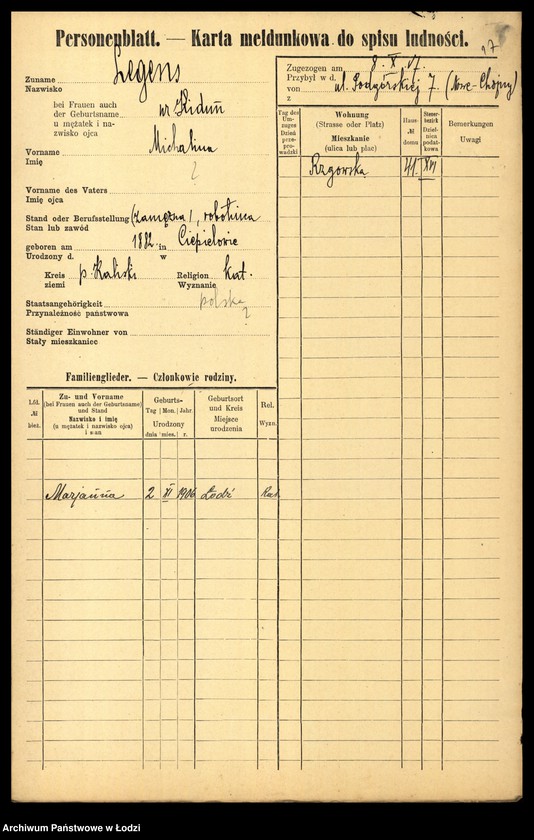 Personenblatt. — Karta meldunkowa do spisu ludności.
Zuname
Nazwisko
Legens
bei Frauen auch
der Geburtsname
u mężatek i na-
zwisko ojca
Vorname Michalina
Imię
Vorname des Vaters
Imię ojca
Stand oder Berufsstellung (zamężna), robotnica
Stan lub zawód
geboren am 1882 in Ciepielowie
Urodzony d. w
Kreis p. Kaliski Religion kat.
ziemi Wyznanie
Staatsangehörigkeit polska ?
Przynależność państwowa
Ständiger Einwohner von
Stały mieszkaniec
Familienglieder. — Członkowie rodziny.
Lfd. № bież.
Zu- und Vorname
(bei Frauen auch der Geburtsname)
und Stand
Nazwisko i imię
(u mężatek i nazwisko ojca)
i stan
Geburts-
Tag Mon. Jahr
Urodzony
dnia mies. r.
Geburtsort
und Kreis
Miejsce
urodzenia
Rel.
Wyzn.
Marjanna 2 XI 1906 Łódź Kat.
17
Zugezogen am 8. X. 17.
Przybył w d.
von ul. Podgórskiej 7. (Nowe-Chojny)
z
Tag des
Um-
zuges
Dzień
prze-
pro-
wadzki
Wohnung
(Strasse oder Platz)
Mieszkanie
(ulica lub plac)
Haus-
№
domu
Steuer-
bezirk
Dziel-
nica
podat-
kowa
Bemerkungen
Uwagi
Rzgowska 41. XVI
Archiwum Państwowe w Łodzi